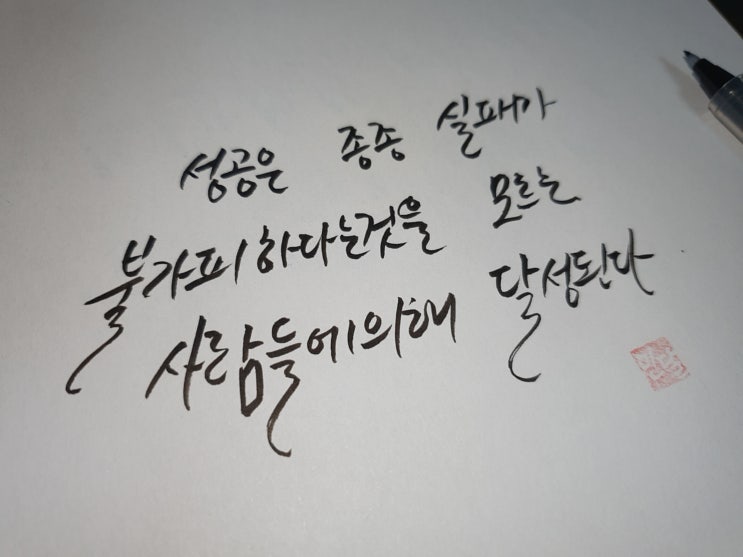 성공은 종종 실패가
불가피하다는것을 모르는
사람들에의해 달성된다